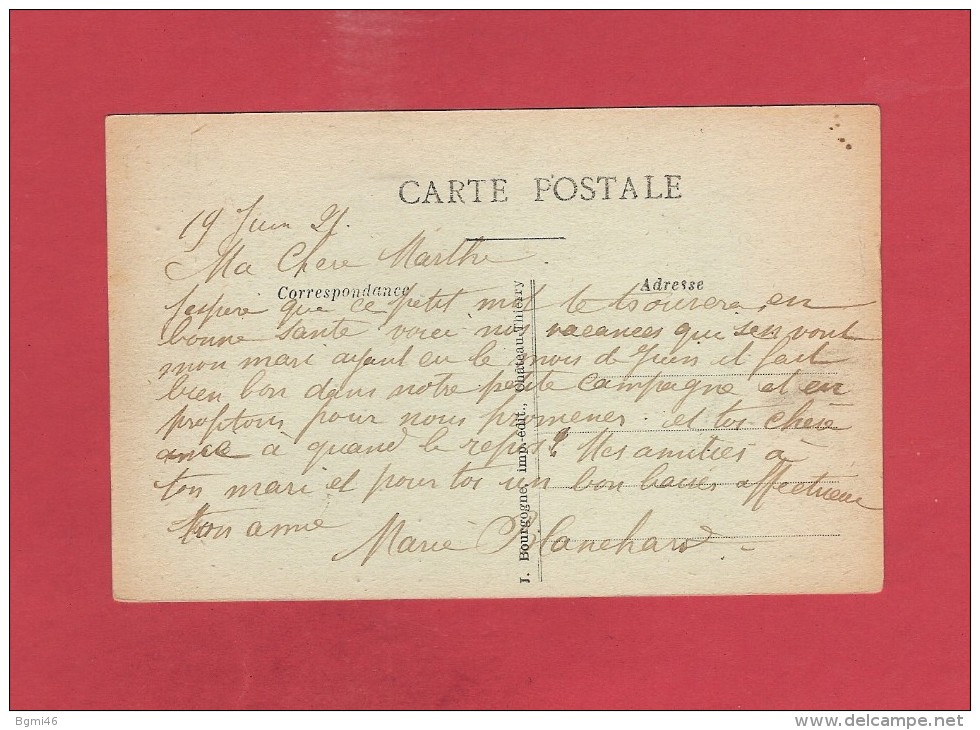 CARTE POSTALE
19 Juin 21.
Ma Chere Marthe.
Correspondance
Adresse
J'espere que ce petit mot te trouvera en
bonne sante voici nos vacances qui s'en vont
mon mari ayant eu le mois de Juin il fait
bien bon dans notre petite campagne et en
profitons pour nous promener. et toi chère
amie à quand le repos? Mes amitiés à
ton mari et pour toi un bon baiser affectueux
Ton amie
Marie Blanchard.
J. Bourgogne, imp.-édit., Château-Thierry
Bgmi46
www.delcampe.net